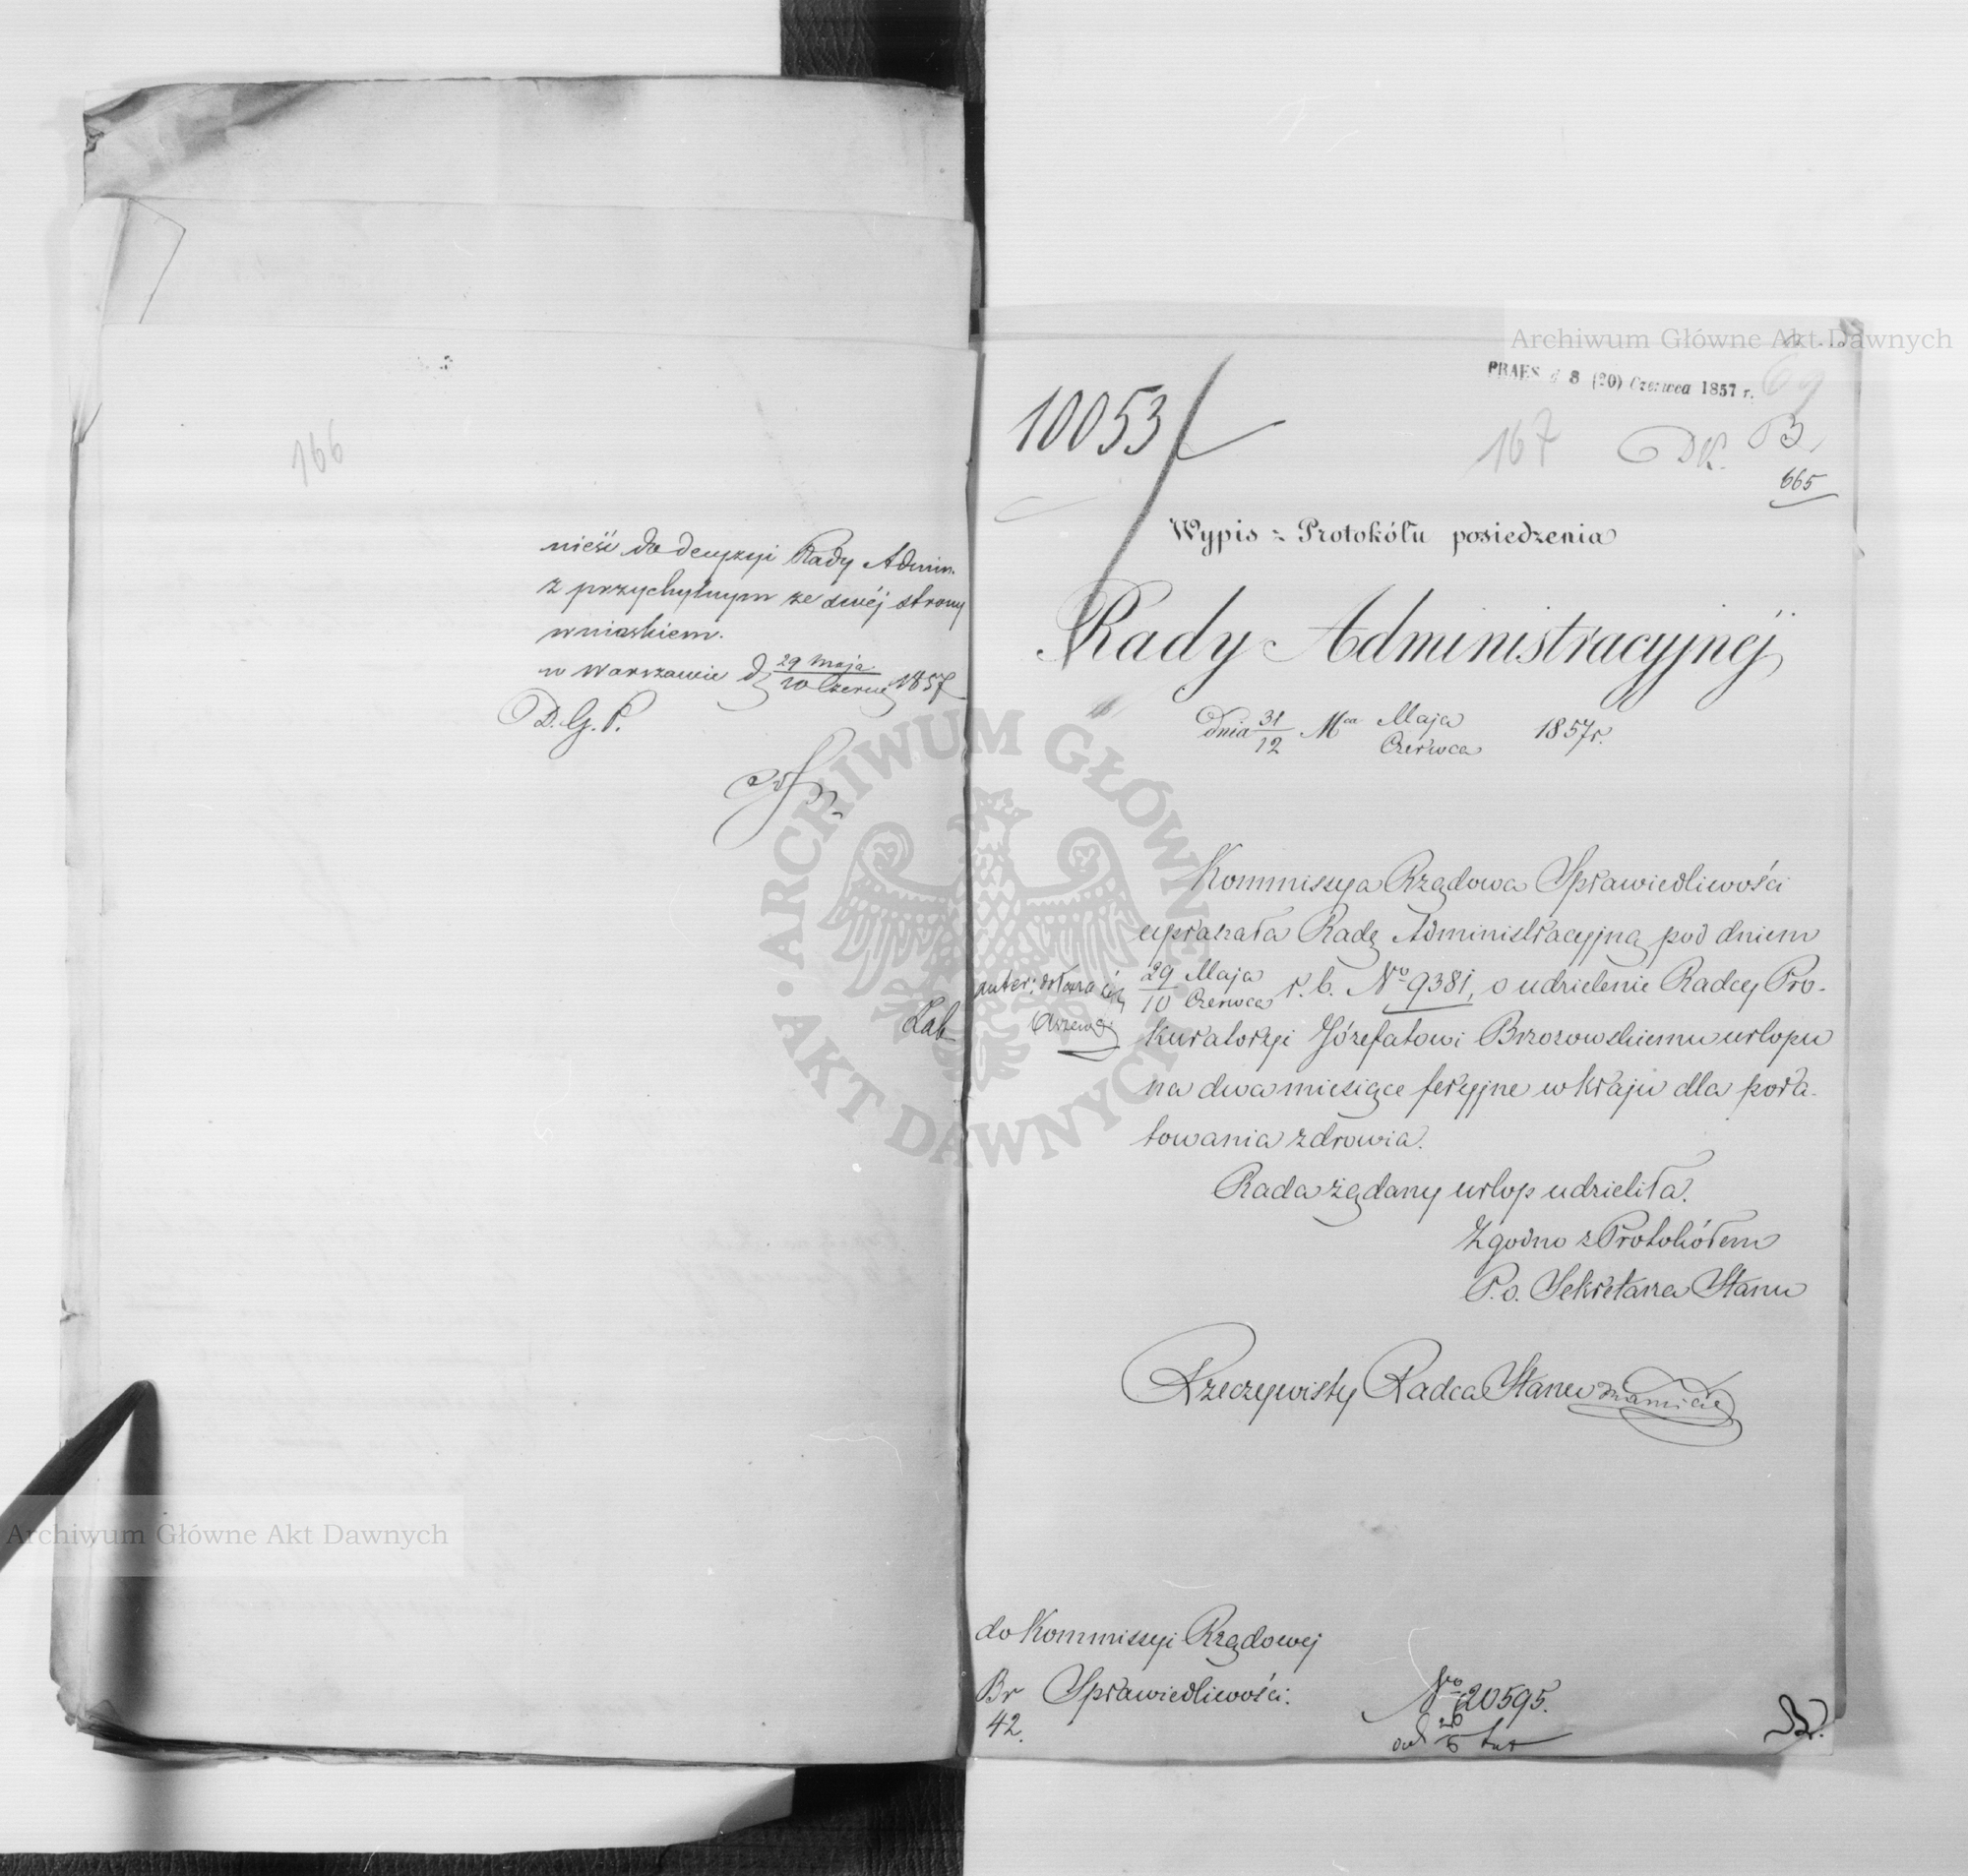 166
nieść do decyzyi Rady Admin.
z przychylnym ze swéj strony
wnioskiem.
w Warszawie d 29 Maja / 10 Czerwc 1857
D. G. P.
Archiwum Główne Akt Dawnych
PRAES d 8 (20) Czerwca 1857 r.
69
10053
167
DK. B.
665
Wypis z Protokółu posiedzenia
Rady Administracyjnéj
Dnia 31/12 Mca Maja / Czerwca 1857r.
Kommissya Rządowa Sprawiedliwości
upraszała Radę Administracyjną pod dniem
29 Maja / 10 Czerwca r. b. No 9381, o udzielenie Radcy Pro-
kuratoryi Józefatowi Brzozowskiemu urlopu
na dwa miesiące feryjne w kraju dla pora-
towania zdrowia.
Rada żądany urlop udzieliła.
Zgodno z Protokółem
P. o. Sekretarza Stanu
Rzeczywisty Radca Stanu
do Kommissyi Rządowej
Br Sprawiedliwości.
42.
No 20595.
ARCHIWUM GŁÓWNE AKT DAWNYCH
Archiwum Główne Akt Dawnych